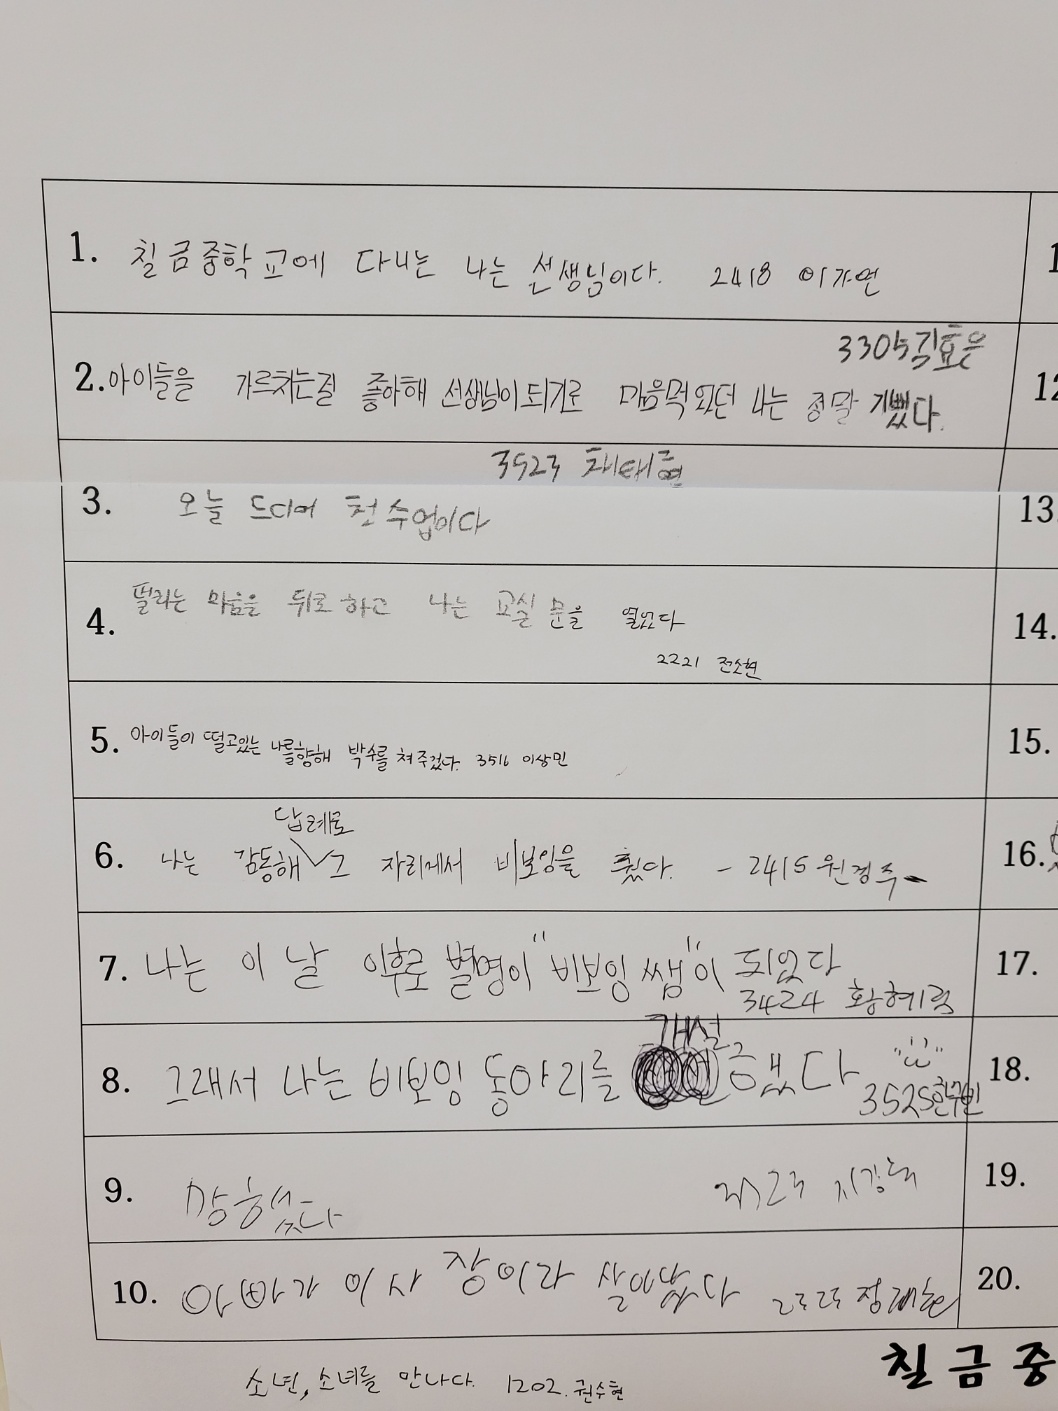 1. 칠금중학교에 다니는 나는 선생님이다. 2418 이자연
1
3305 김효은
2. 아이들을 가르치는걸 좋아해 선생님이 되기로 마음먹었던 나는 정말 기뻤다.
12
3523 채태현
3. 오늘 드디어 첫 수업이다
13.
4. 떨리는 마음을 뒤로 하고 나는 교실 문을 열었다
14.
2221 전소현
5. 아이들이 떨고있는 나를향해 박수를 쳐주었다. 3516 이상민
15.
답례로
6. 나는 감동해 그 자리에서 비보잉을 췄다. - 2415 원경주-
16.
7. 나는 이 날 이후로 별명이 "비보잉 쌤"이 되었다
3424 황혜림
17.
개설
8. 그래서 나는 비보잉 동아리를 했다
3525
18.
9. 망했다
19.
10. 아빠가 이사장이라 살아남았다 2325
20.
칠금중
소년, 소녀를 만나다. 1202. 권수현